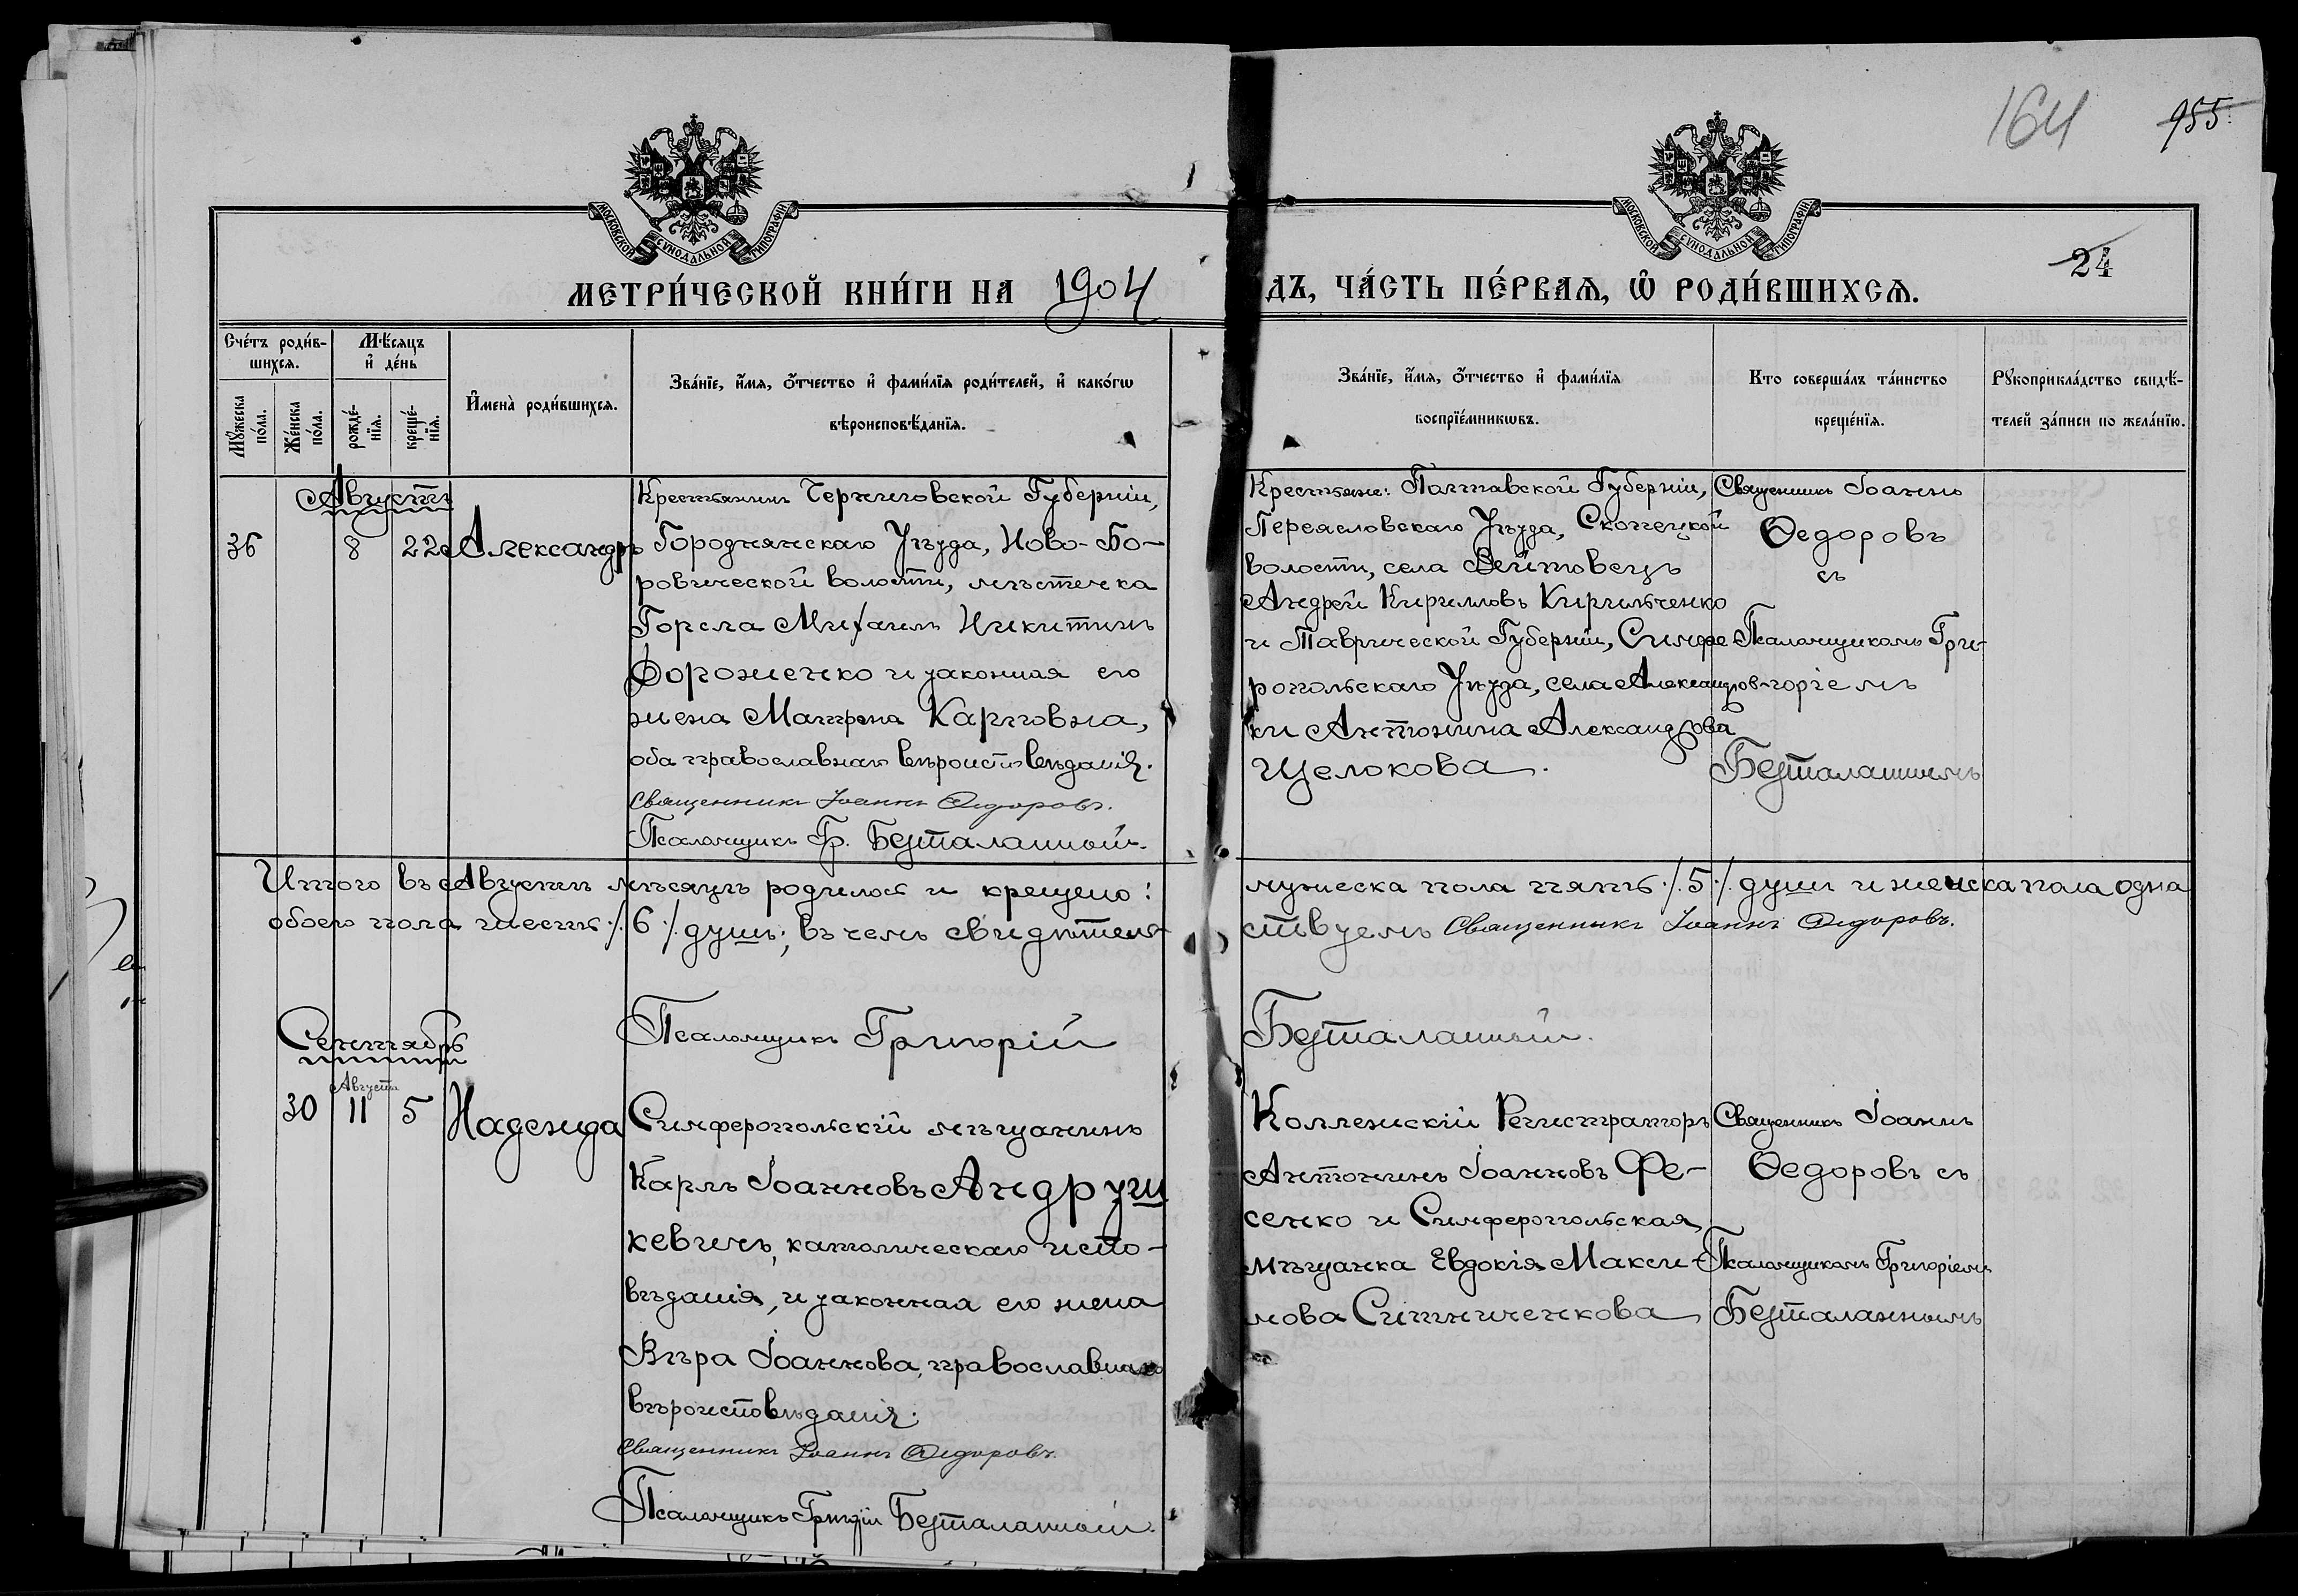 164
955
МОСКОВСКОЙ СѴНОДАЛЬНОЙ ТИПОГРАФІИ
МОСКОВСКОЙ СѴНОДАЛЬНОЙ ТИПОГРАФІИ
24
МЕТРИ́ЧЕСКОЙ КНИ́ГИ НА 1904
ДЪ, ЧА́СТЬ ПЕ́РВАѦ, Ѽ РОДИ́ВШИХСѦ.
Сче́тъ роди́в-
шихсѧ.
Мꙋ́жеска по́ла.
Же́нска по́ла.
Мѣ́сѧцъ
и҆ де́нь
рожде́-
нїѧ.
креще́-
нїѧ.
И҆мена̀ роди́вшихсѧ.
Зва́нїе, и҆́мѧ, ѻ҆́тчество и҆ фами́лїѧ роди́телей, и҆ како́гѡ
вѣроисповѣ́данїѧ.
Зва́нїе, и҆́мѧ, ѻ҆́тчество и҆ фами́лїѧ
воспрїе́мникѡвъ.
Кто соверша́лъ та́инство
креще́нїѧ.
Рꙋкоприкла́дство свидѣ́-
телей за́писи по жела́нїю.
Августъ
36
8
22
Александръ
Крестьянинъ Черниговской Губерніи,
Городнянскаго Уѣзда, Ново-Бо-
ровической волости, мѣстечка
Горска Михаилъ Никитинъ
Дорошенко и законная его
жена Матрона Карповна,
оба православнаго вѣроисповѣданія.
Священникъ Іоаннъ Ѳедоровъ.
Псаломщикъ Гр. Безталанный.
Крестьяне: Полтавской Губерніи,
Переясловскаго Уѣзда, Скопецкой
волости, села Войтовецъ
Андрей Кирилловъ Кирильченко
и Таврической Губерніи, Симфе
ропольскаго Уѣзда, села Александров-
ки Антонина Александрова
Щелокова.
Священникъ Іоаннъ
Ѳедоровъ
съ
Псаломщикомъ Гри-
горіемъ
Безталаннымъ
Итого въ Августѣ мѣсяцѣ родилося и крещено:
мужеска пола пять ·/.5·/. душъ и женска пола одна
обоего пола шесть ·/.6·/. душъ; въ чемъ свидѣтель-
ствуемъ Священникъ Іоаннъ Ѳедоровъ.
Псаломщикъ Григорій
Безталанный.
Сентябрь
Августа
30
11
5
Надежда
Симферопольскій мѣщанинъ
Карлъ Іоанновъ Андруш
кевичъ, католическаго испо-
вѣданія, и законная его жена
Вѣра Іоаннова, православнаго
вѣроисповѣданія.
Священникъ Іоаннъ Ѳедоровъ.
Псаломщикъ Григорій Безталанный.
Коллежскій Регистраторъ
Антонинъ Іоанновъ Фе-
сенко и Симферопольская
мѣщанка Евдокія Макси-
мова Ситниченкова
Священникъ Іоаннъ
Ѳедоровъ съ
Псаломщикомъ Григоріемъ
Безталаннымъ